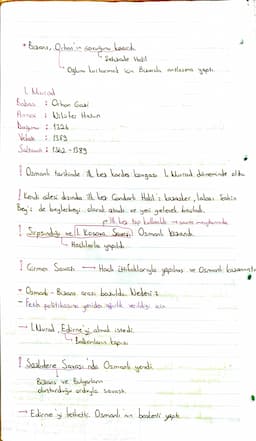 * Bizans, Orhan'ın çocuğunu kaçırdı.
↳ Şehzade Halil
↳ Oğlunu kurtarmak için Bizansla antlaşma yaptı.
I. Murad
Babası : Orhan Gazi
Annesi : Nilüfer Hatun
Doğumu : 1326
Vefatı : 1389
Saltanatı : 1362-1389
! Osmanlı tarihinde ilk kez kardeş kavgası I. Murad döneminde oldu
! Kendi ailesi dışında ilk kez Çandarlı Halil'i kazasker, lalası Şahin
Bey'i de beylerbeyi olarak atadı ve yeni gelenek başlattı.
→ ilk kez top kullanıldı → savaş meydanında
! Sırpsındığı ve I. Kosova Savaşı Osmanlı kazandı.
↳ Haçlılarla yapıldı
! Çirmen Savaşı → Haçlı ittifaklarıyla yapılmış ve Osmanlı kazanmıştır
- Osmanlı - Bizans arası bozuldu. Nedeni?
- Fetih politikasına yeniden ağırlık verildiği için
→ I. Murad, Edirne'yi almak istedi.
↳ Balkanların kapısı
! Sazlıdere Savaşı'nda Osmanlı yendi.
Bizans ve Bulgarların
oluşturduğu orduyla savaştı.
→ Edirne'yi fethetti. Osmanlı'nın başkenti yaptı.